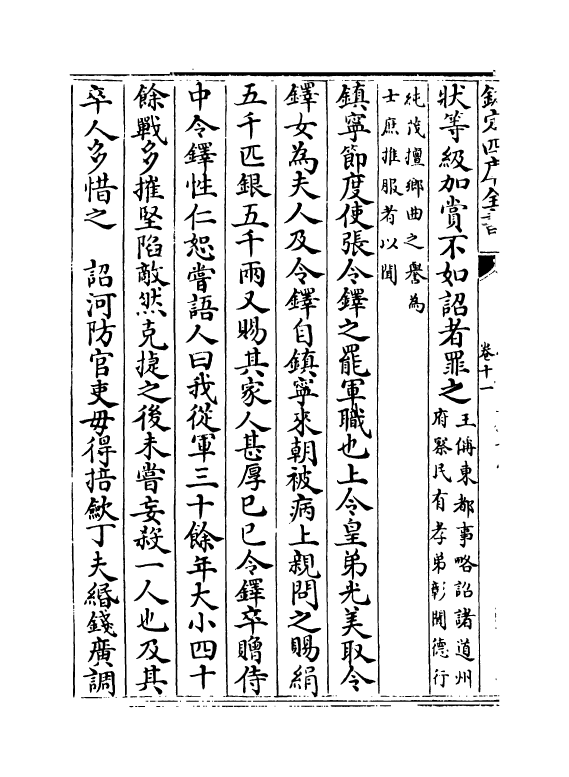 欽定四庫全書
卷十一
狀等級加賞不如詔者罪之王偁東都事略詔諸道州
府察民有孝弟彰聞德行
純茂擅鄉曲之譽為
士庶推服者以聞
鎮寧節度使張令鐸之罷軍職也上令皇弟光美取令
鐸女為夫人及令鐸自鎮寧來朝被病上親問之賜絹
五千匹銀五千兩又賜其家人甚厚已巳令鐸卒贈侍
中令鐸性仁恕嘗語人曰我從軍三十餘年大小四十
餘戰多摧堅陷敵然克捷之後未嘗妄殺一人也及其
卒人多惜之　詔河防官吏毋得掊歛丁夫緡錢廣調